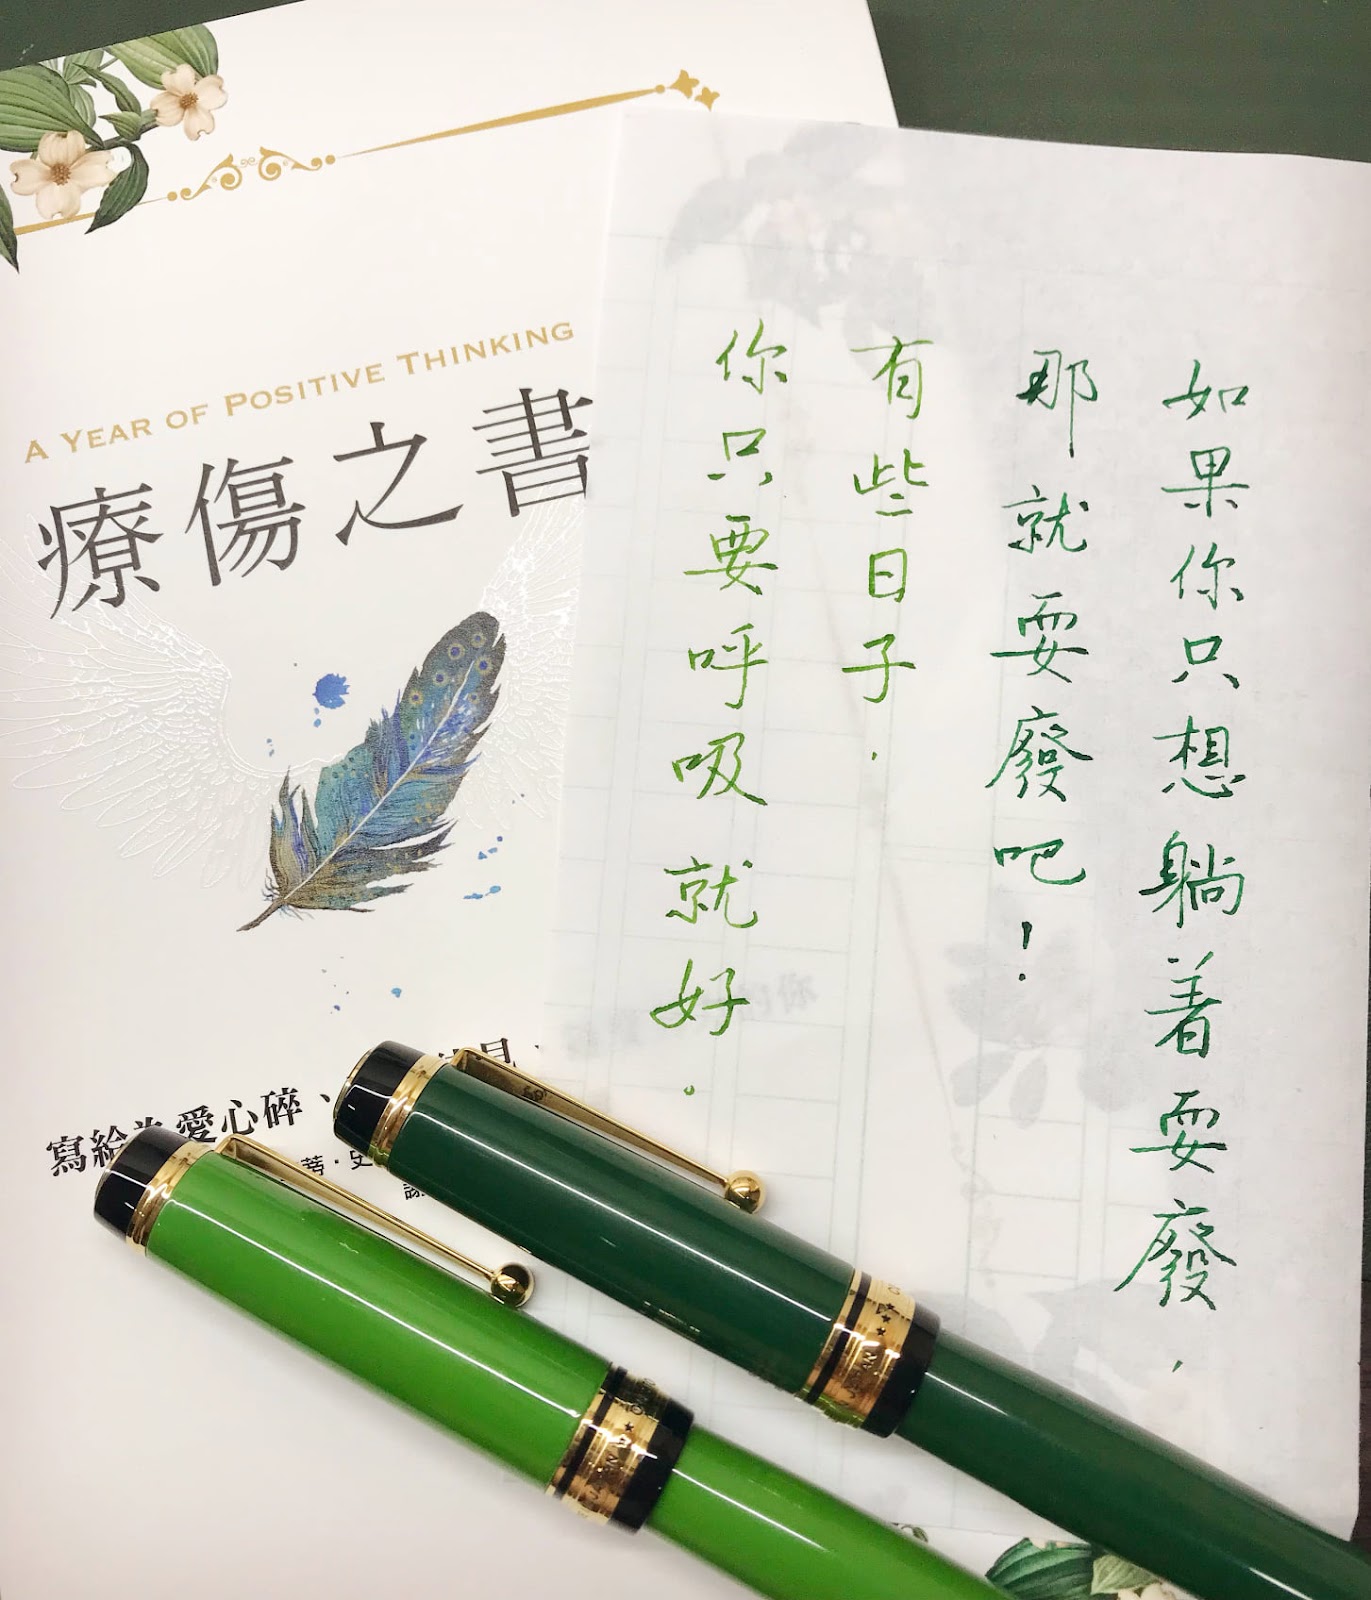 A YEAR OF POSITIVE THINKING
療傷之書
寫給為愛心碎、
蒂・史
如果你只想躺着耍廢，
那就耍廢吧！
有些日子，
你只要呼吸就好。